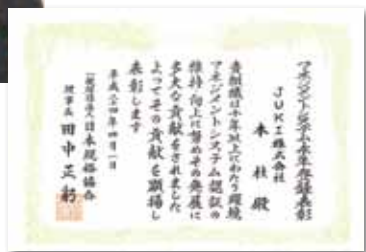 マネジメントシステム十年登録表彰
JUKI株式会社
本社 殿
貴組織は十年以上にわたり環境
マネジメントシステム認証の
維持・向上に努めその発展に
多大な貢献をされました
よってその貢献を顕揚し
表彰します
平成二四年四月一日
一般財団法人日本規格協会
理事長 田中正躬